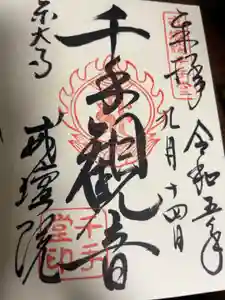 奉拝
令和五年
九月十四日
千手観音
東大寺
戒壇院
千手
堂印